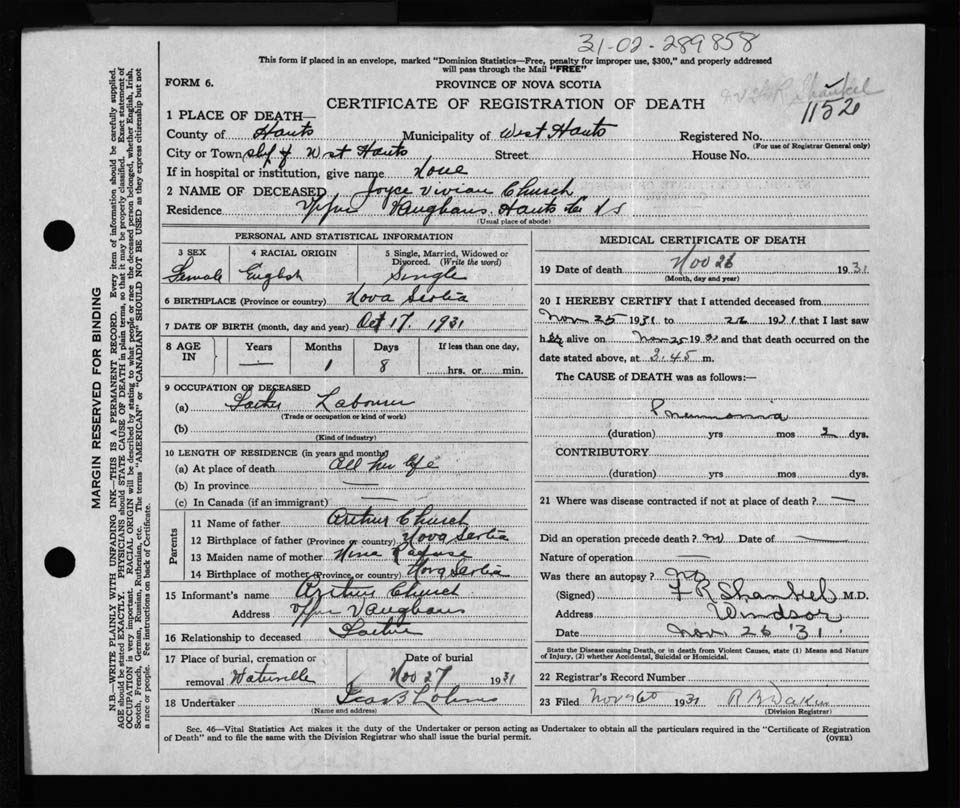 31-02-289858
This form if placed in an envelope, marked "Dominion Statistics—Free, penalty for improper use, $300," and properly addressed
will pass through the Mail "FREE"
FORM 6.
PROVINCE OF NOVA SCOTIA
R Shankel
1152
CERTIFICATE OF REGISTRATION OF DEATH
1 PLACE OF DEATH—
County of Hants Municipality of West Hants Registered No.
(For use of Registrar General only)
City or Town of West Hants Street House No.
If in hospital or institution, give name None
2 NAME OF DECEASED Joyce Vivian Church
Residence Upper Vaughans, Hants Co NS
(Usual place of abode)
PERSONAL AND STATISTICAL INFORMATION
3 SEX 4 RACIAL ORIGIN 5 Single, Married, Widowed or
Divorced. (Write the word)
Female English Single
6 BIRTHPLACE (Province or country) Nova Scotia
7 DATE OF BIRTH (month, day and year) Oct 17. 1931
8 AGE IN Years Months Days If less than one day,
— 1 8 hrs. or min.
9 OCCUPATION OF DECEASED
(a) Father Labourer
(Trade or occupation or kind of work)
(b)
(Kind of industry)
10 LENGTH OF RESIDENCE (in years and months)
(a) At place of death All her life
(b) In province —
(c) In Canada (if an immigrant) —
Parents
11 Name of father Arthur Church
12 Birthplace of father (Province or country) Nova Scotia
13 Maiden name of mother Nina
14 Birthplace of mother (Province or country) Nova Scotia
15 Informant's name Arthur Church
Address Upper Vaughans
16 Relationship to deceased Father
17 Place of burial, cremation or Date of burial
removal Waterville Nov 27 1931
18 Undertaker
(Name and address)
MEDICAL CERTIFICATE OF DEATH
19 Date of death Nov 26 1931
(Month, day and year)
20 I HEREBY CERTIFY that I attended deceased from
Nov 25 1931 to 26 1931 that I last saw
her alive on Nov 25 1931 and that death occurred on the
date stated above, at 3.45 m.
The CAUSE of DEATH was as follows:—
Pneumonia
(duration) yrs mos 2 dys.
CONTRIBUTORY
(duration) yrs mos dys.
21 Where was disease contracted if not at place of death? —
Did an operation precede death? no Date of —
Nature of operation —
Was there an autopsy? no
(Signed) F R Shankel M.D.
Address Windsor
Date Nov 26 '31.
State the Disease causing Death, or in death from Violent Causes, state (1) Means and Nature
of Injury, (2) whether Accidental, Suicidal or Homicidal.
22 Registrar's Record Number
23 Filed 1931
(Division Registrar)
Sec. 46—Vital Statistics Act makes it the duty of the Undertaker or person acting as Undertaker to obtain all the particulars required in the "Certificate of Registration
of Death" and to file the same with the Division Registrar who shall issue the burial permit.
(OVER)
MARGIN RESERVED FOR BINDING
N.B.—WRITE PLAINLY WITH UNFADING INK—THIS IS A PERMANENT RECORD. Every item of information should be carefully supplied.
AGE should be stated EXACTLY. PHYSICIANS should STATE CAUSE OF DEATH in plain terms, so that it may be properly classified. Exact statement of
OCCUPATION is very important. RACIAL ORIGIN will be described by stating to what people or race the deceased person belonged, whether English, Irish,
Scotch, French, German, Russian, Ruthenian, etc. The terms "AMERICAN" or "CANADIAN" SHOULD NOT BE USED as they express citizenship but not
a race or people. Fee instructions on back of Certificate.